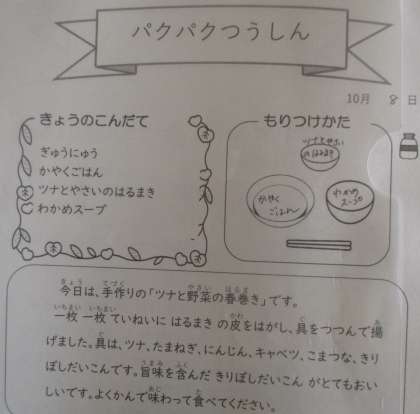 パクパクつうしん
10月 8 日
きょうのこんだて
ぎゅうにゅう
かやくごはん
ツナとやさいのはるまき
わかめスープ
もりつけかた
ツナとやさい
のはるまき
かやく
ごはん
わかめ
スープ
今日は、手作りの「ツナと野菜の春巻き」です。
一枚 一枚 ていねいに はるまき の皮をはがし、具をつつんで揚
げました。具は、ツナ、たまねぎ、にんじん、キャベツ、こまつな、きり
ぼしだいこんです。旨味を含んだ きりぼしだいこん がとてもおい
しいです。よくかんで味わって食べてください。